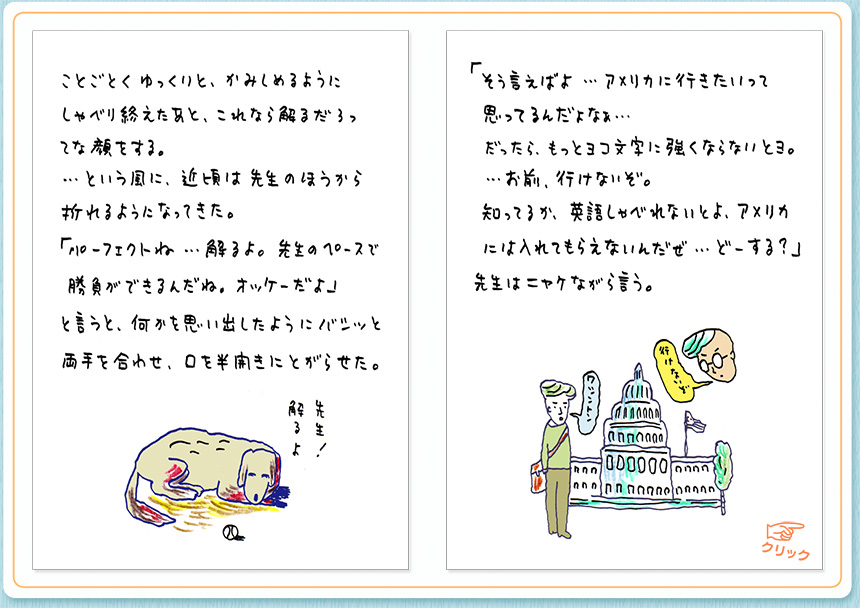 ことごとくゆっくりと、かみしめるように
しゃべり終えたあと、これなら解るだろっ
てな顔をする。
…という風に、近頃は先生のほうから
折れるようになってきた。
「パーフェクトね…解るよ。先生のペースで
勝負ができるんだね。オッケーだよ」
と言うと、何かを思い出したようにバシッと
両手を合わせ、口を半開きにとがらせた。
先生！
解るよ
「そう言えばよ…アメリカに行きたいって
思ってるんだよなぁ…
だったら、もっとヨコ文字に強くならないとヨ。
…お前、行けないぞ。
知ってるか、英語しゃべれないとよ、アメリカ
には入れてもらえないんだぜ…どーする？」
先生はニヤケながら言う。
行けないぞ
ワシントン！
クリック